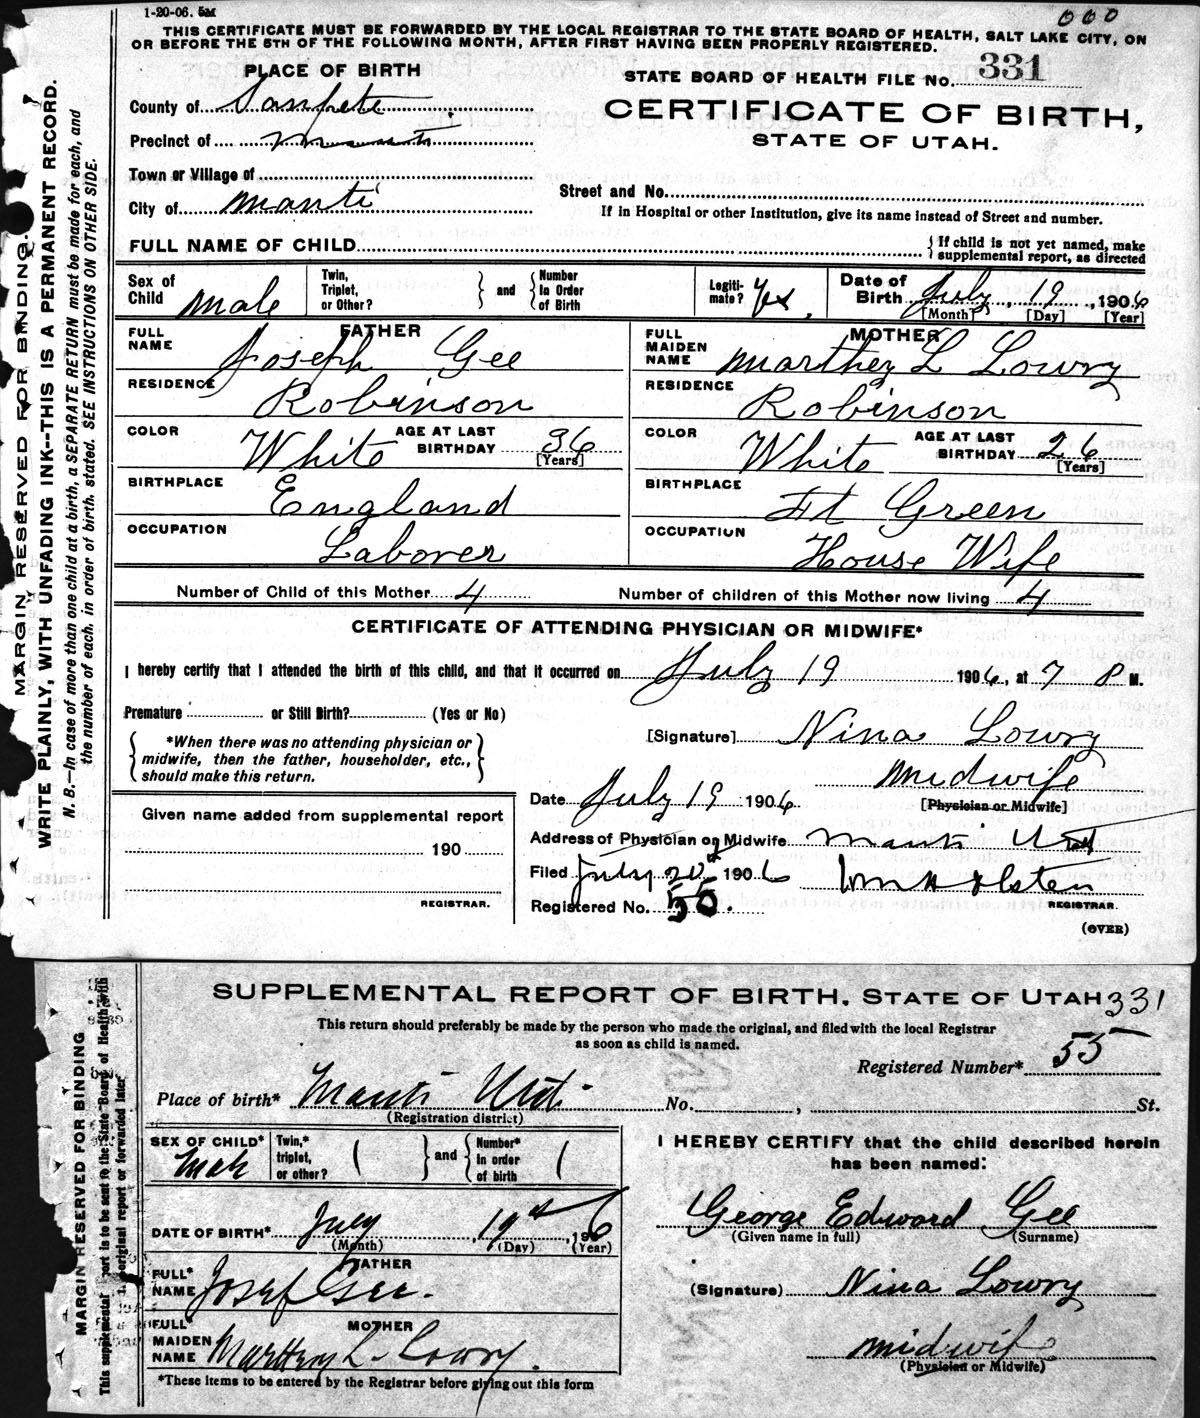 1-20-06. 5M
000
THIS CERTIFICATE MUST BE FORWARDED BY THE LOCAL REGISTRAR TO THE STATE BOARD OF HEALTH, SALT LAKE CITY, ON
OR BEFORE THE 5TH OF THE FOLLOWING MONTH, AFTER FIRST HAVING BEEN PROPERLY REGISTERED.
PLACE OF BIRTH
STATE BOARD OF HEALTH FILE No. 331
County of Sanpete
CERTIFICATE OF BIRTH,
STATE OF UTAH.
Precinct of Manti
Town or Village of
Street and No.
City of Manti
If in Hospital or other Institution, give its name instead of Street and number.
FULL NAME OF CHILD
{ If child is not yet named, make
supplemental report, as directed
Sex of Child Male
Twin, Triplet, or Other? } and { Number in Order of Birth
Legiti-mate? Yes
Date of Birth July, 19, 1906
[Month] [Day] [Year]
FATHER
MOTHER
FULL NAME Joseph Gee
FULL MAIDEN NAME Marthey L Lowry
RESIDENCE Robinson
RESIDENCE Robinson
COLOR White AGE AT LAST BIRTHDAY 36 [Years]
COLOR White AGE AT LAST BIRTHDAY 26 [Years]
BIRTHPLACE England
BIRTHPLACE Ft Green
OCCUPATION Laborer
OCCUPATION House Wife
Number of Child of this Mother 4 Number of children of this Mother now living 4
CERTIFICATE OF ATTENDING PHYSICIAN OR MIDWIFE*
I hereby certify that I attended the birth of this child, and that it occurred on July 19 1906, at 7 P M.
Premature or Still Birth? (Yes or No)
{ *When there was no attending physician or
midwife, then the father, householder, etc.,
should make this return. }
[Signature] Nina Lowry
Midwife
[Physician or Midwife]
Date July 19 1906
Given name added from supplemental report
190
REGISTRAR.
Address of Physician or Midwife Manti Utah
Filed July 20th 1906 Wm H Olsten
REGISTRAR.
Registered No. 55.
(OVER)
MARGIN RESERVED FOR BINDING.
WRITE PLAINLY, WITH UNFADING INK--THIS IS A PERMANENT RECORD.
N. B.—In case of more than one child at a birth, a SEPARATE RETURN must be made for each, and
the number of each, in order of birth, stated. SEE INSTRUCTIONS ON OTHER SIDE.
SUPPLEMENTAL REPORT OF BIRTH. STATE OF UTAH 331
This return should preferably be made by the person who made the original, and filed with the local Registrar
as soon as child is named.
Registered Number* 55
Place of birth* Manti Utd. No. , St.
(Registration district)
SEX OF CHILD* Male
Twin,* triplet, or other? 1 } and { Number* in order of birth 1
I HEREBY CERTIFY that the child described herein
has been named:
DATE OF BIRTH* July, 19th, 1906
(Month) (Day) (Year)
George Edward Gee
(Given name in full) (Surname)
FATHER
FULL* NAME Josef Gee.
(Signature) Nina Lowry
MOTHER
FULL* MAIDEN NAME Marthey L. Lowry.
midwife
(Physician or Midwife)
*These items to be entered by the Registrar before giving out this form
MARGIN RESERVED FOR BINDING